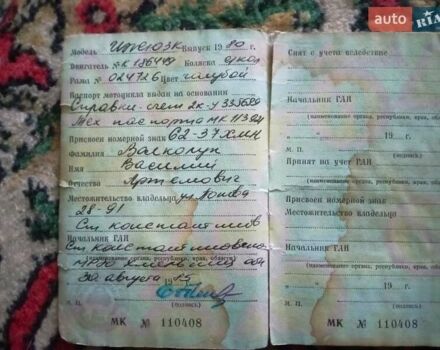 auto RIA
Модель ИЖЮ3К Выпуск 1980 г.
Двигатель № К Коляска одкол
Рама № 024726 Цвет голубой
Паспорт мотоцикла выдан на основании
Справки-счет 2к-У 335689
Тех паспорта МК
Присвоен номерной знак 62-37 ХМН
Фамилия
Имя Василий
Отчество Артемович
Местожительство владельца ул Попова
28-91
Ст констант нов
Начальник ГАИ
Ст
(наименование органа, республики, края, области)
30 августа
М. П. (подпись)
МК № 110408
Снят с учета вследствие
Начальник ГАИ
(наименование органа, республики, края, области)
19 г.
М. П. (подпись)
Принят на учет ГАИ
(наименование органа, республики, края, области)
Присвоен номерной знак
Местожительство владельца
Начальник ГАИ
(наименование органа, республики, края, области)
19 г.
М. П. (подпись)
МК № 110408